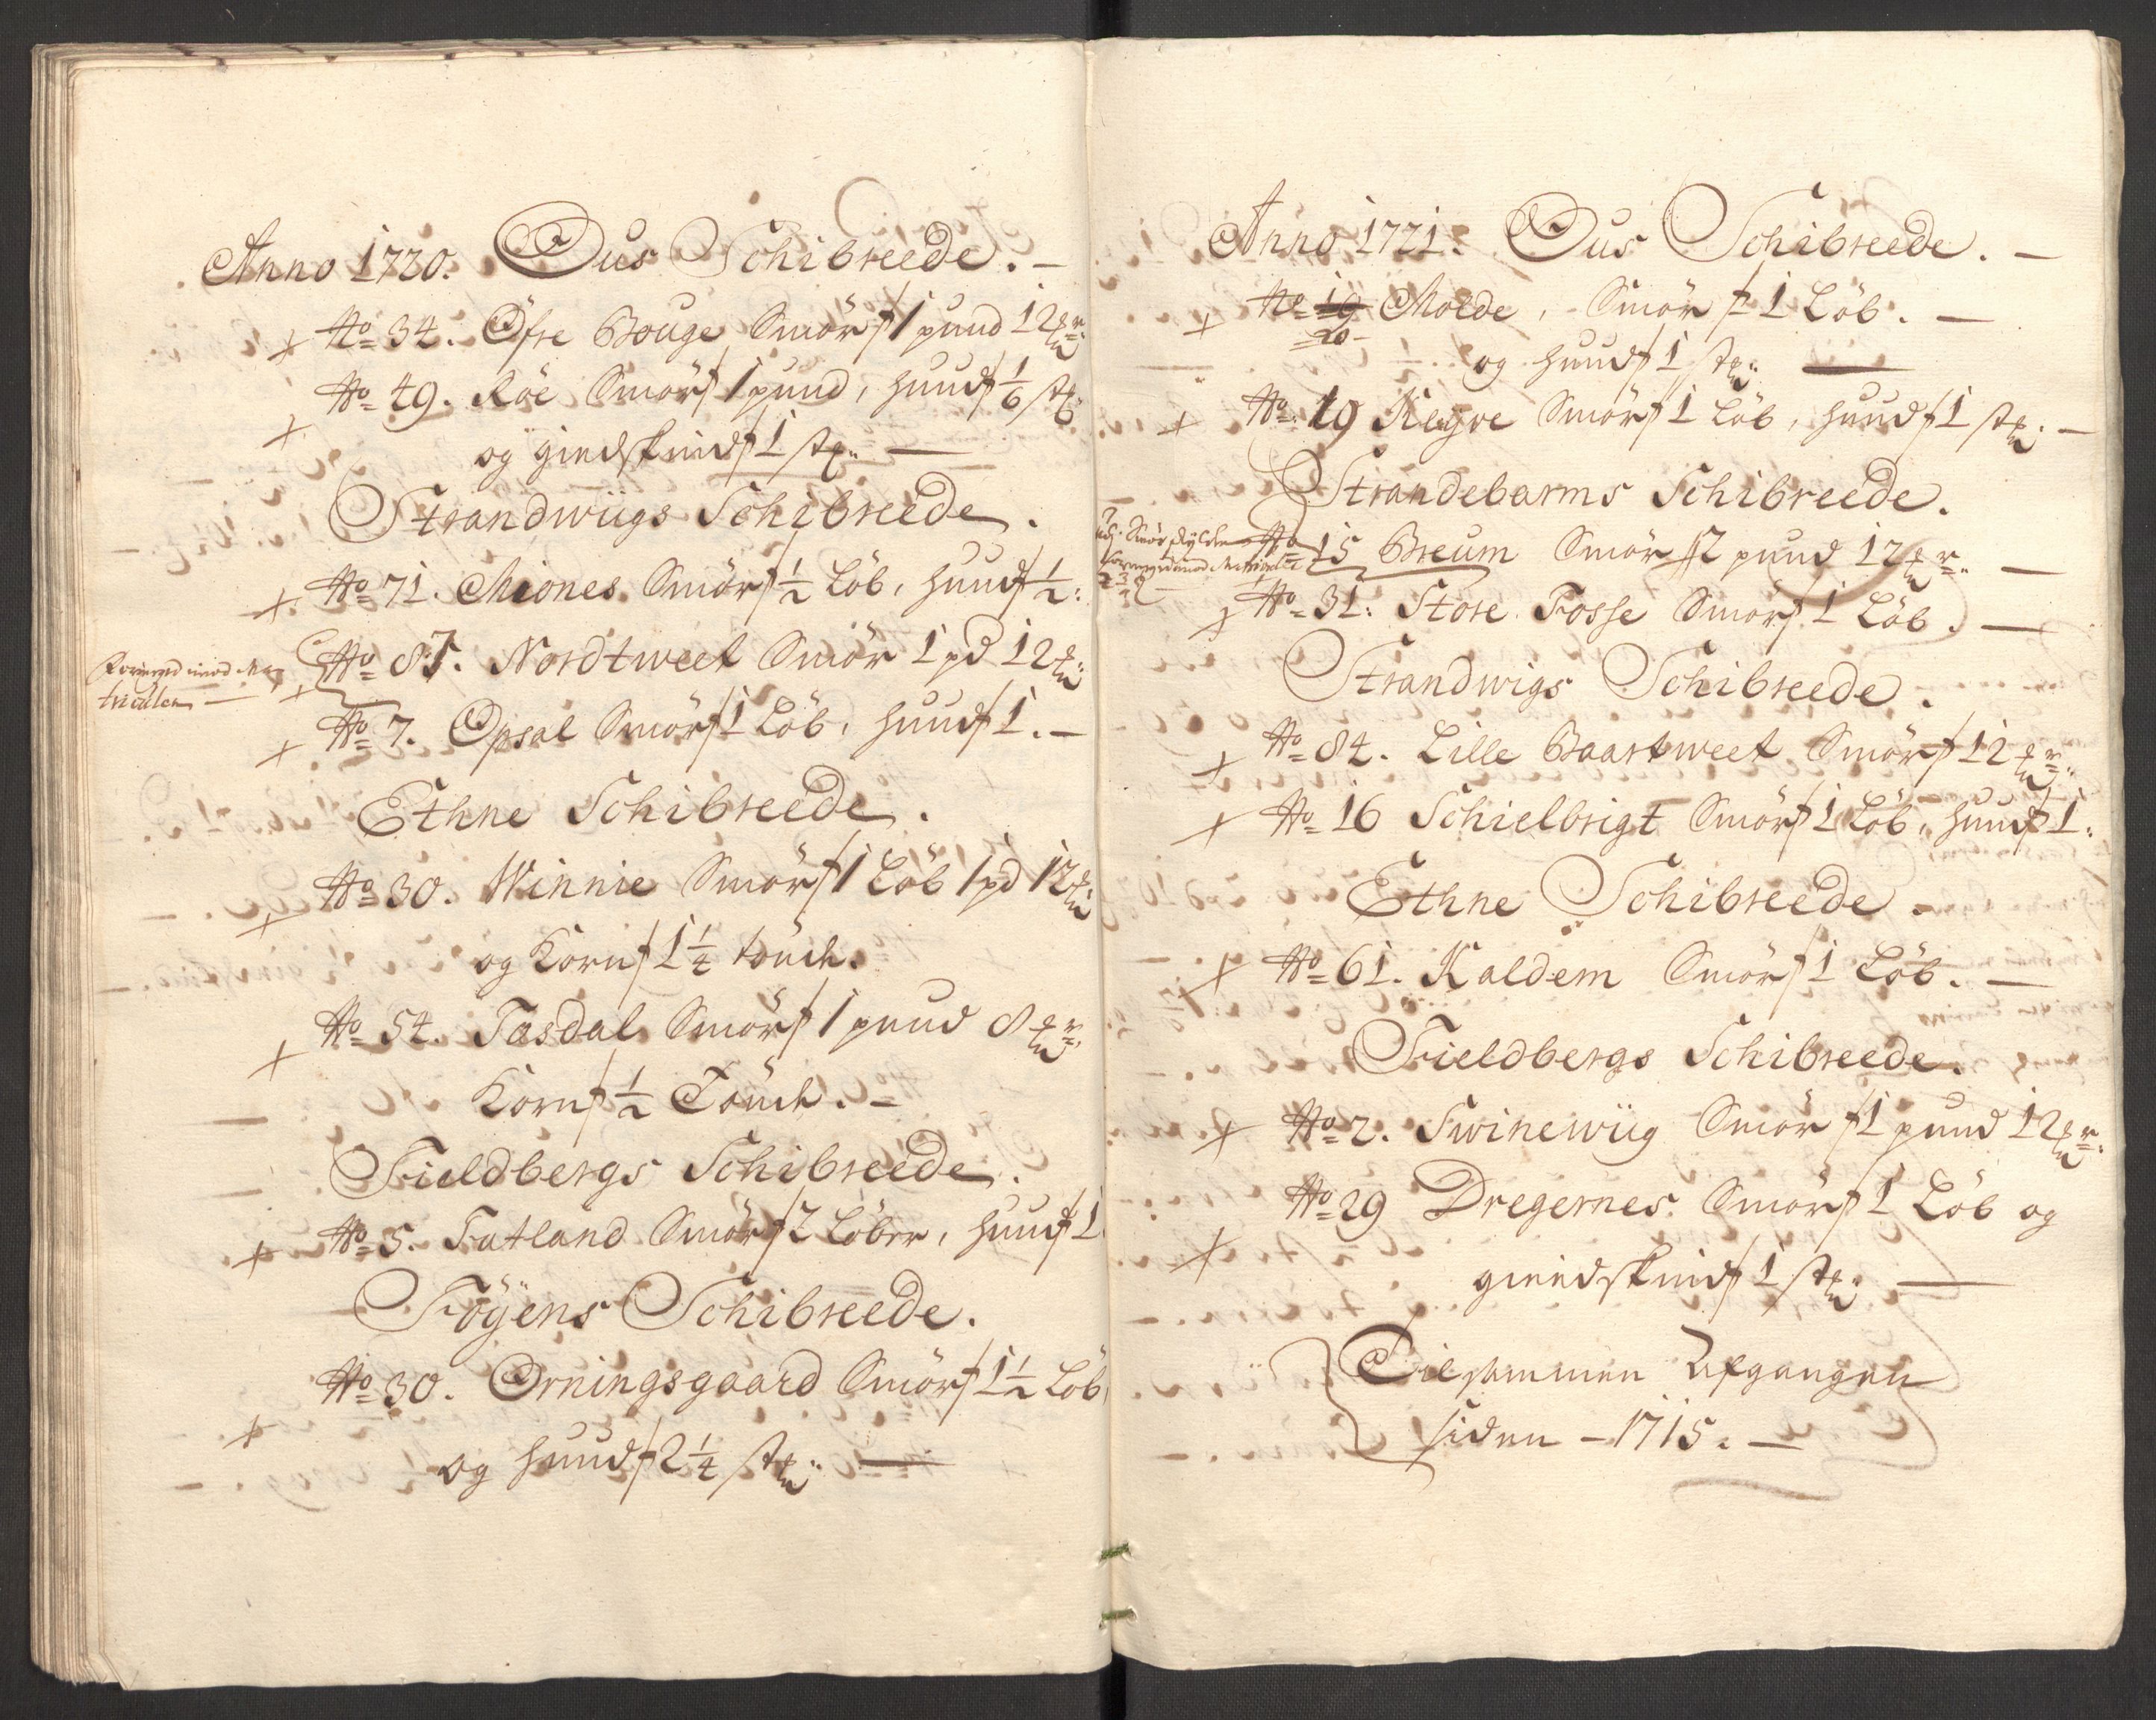 Anno 1720. Ous Schibreede. –
+ No 34. Öfre Bouge Smör 1 pund 12 mr:
+ No 49. Röe Smör 1 pund, huud 1/6 st:
og giedskind 1 st: –
Strandwiigs Schibreede.
+ No 71. Miones Smör 1/2 Löb, huud 1/2:
+ No 87. Nordtweet Smör 1 pd 12
+ No 7. Opsal Smör 1 Löb, huud 1. –
Ethne Schibreede.
+ No 30. Winnie Smör 1 Löb 1 pd 12
og Korn 1 1/4 tönde.
+ No 54. Tasdal Smör 1 pund 8 mr:
Korn 1/2 Tönde. –
Fieldbergs Schibreede.
+ No 5. Fatland Smör 2 Löber, huud 1
Föyens Schibreede.
+ No 30. Orningsgaard Smör 1 1/2 Löb
og huud 2 1/4 st: –
Anno 1721. Ous Schibreede. –
+ No 19 Molde, Smör 1 Löb. –
20
og huud 1 st: –
+ No 19 Regve Smör 1 Löb, huud 1 st: –
Strandebarms Schibreede.
No 15 Breum Smör 2 pund 12 mr: –
+ No 31: Store Fosse Smör 1 Löb. –
Strandwigs Schibreede.
+ No 84. Lille Baartweet Smör 12 mr:
+ No 16 Schielbrigt Smör 1 Löb, huud 1:
Ethne Schibreede.
+ No 61. Kaldem Smör 1 Löb. –
Fieldbergs Schibreede.
+ No 2. Swinewiig Smör 1 pund 12 mr:
+ No 29 Dregernes Smör 1 Löb og
giedskind 1 st: –
Tilsammen Afgangen
siden – 1715. –